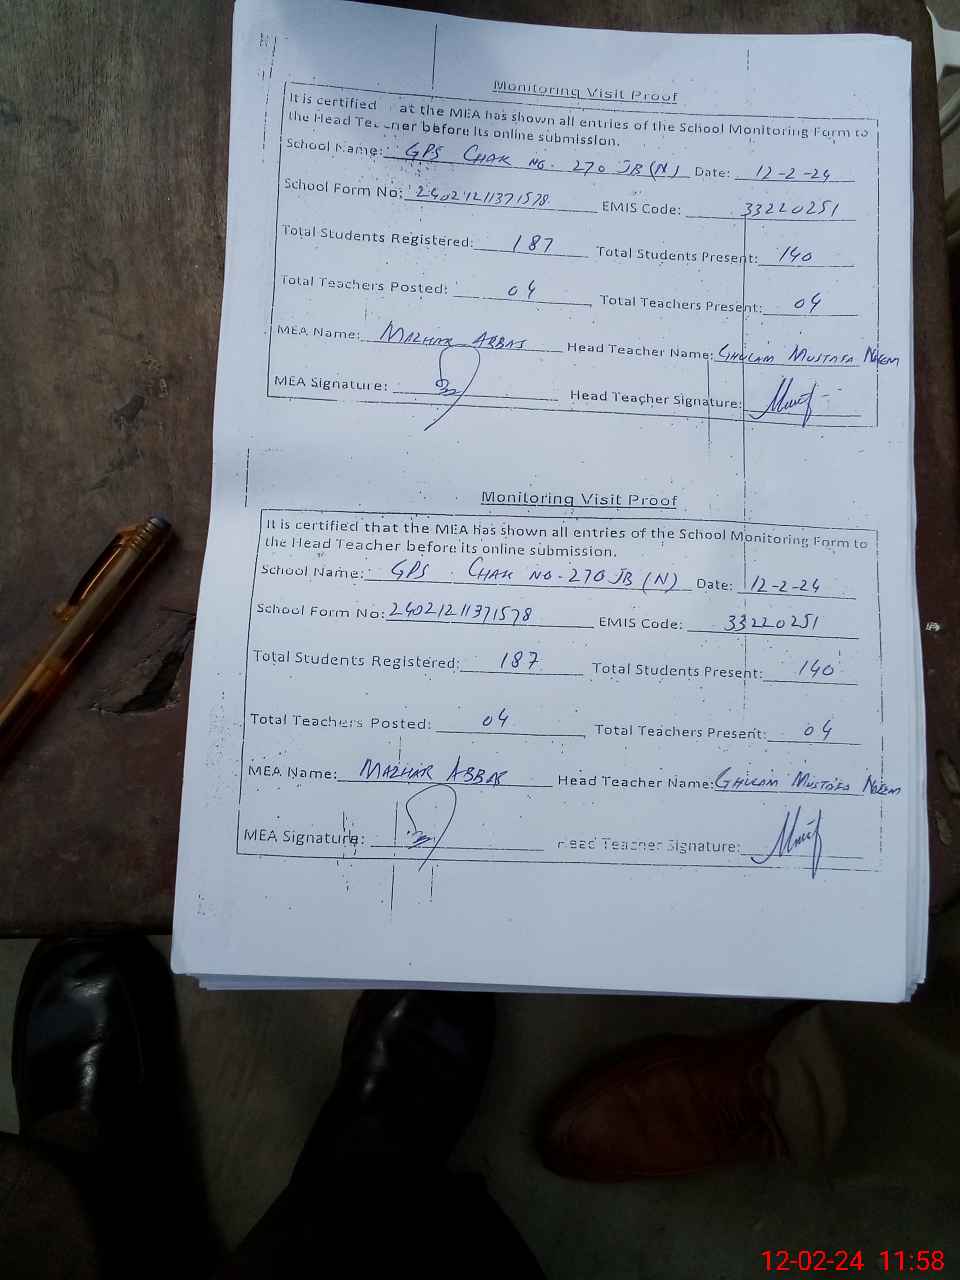 Monitoring Visit Proof
It is certified at the MEA has shown all entries of the School Monitoring Form to
the Head Teacher before its online submission.
School Name: GPS CHAK NO. 270 JB (N) Date: 12-2-24
School Form No: 24021211371578 EMIS Code: 33220251
Total Students Registered: 187 Total Students Present: 140
Total Teachers Posted: 04 Total Teachers Present: 04
MEA Name: MAZHAR ABBAS Head Teacher Name: GHULAM MUSTAFA NAEEM
MEA Signature: Head Teacher Signature:
Monitoring Visit Proof
It is certified that the MEA has shown all entries of the School Monitoring Form to
the Head Teacher before its online submission.
School Name: GPS . CHAK NO. 270 JB (N) Date: 12-2-24
School Form No: 24021211371578 EMIS Code: 33220251
Total Students Registered: 187 Total Students Present: 140
Total Teachers Posted: 04 Total Teachers Present: 04
MEA Name: MAZHAR ABBAS Head Teacher Name: GHULAM MUSTAFA NAEEM
MEA Signature: Head Teacher Signature:
12-02-24 11:58